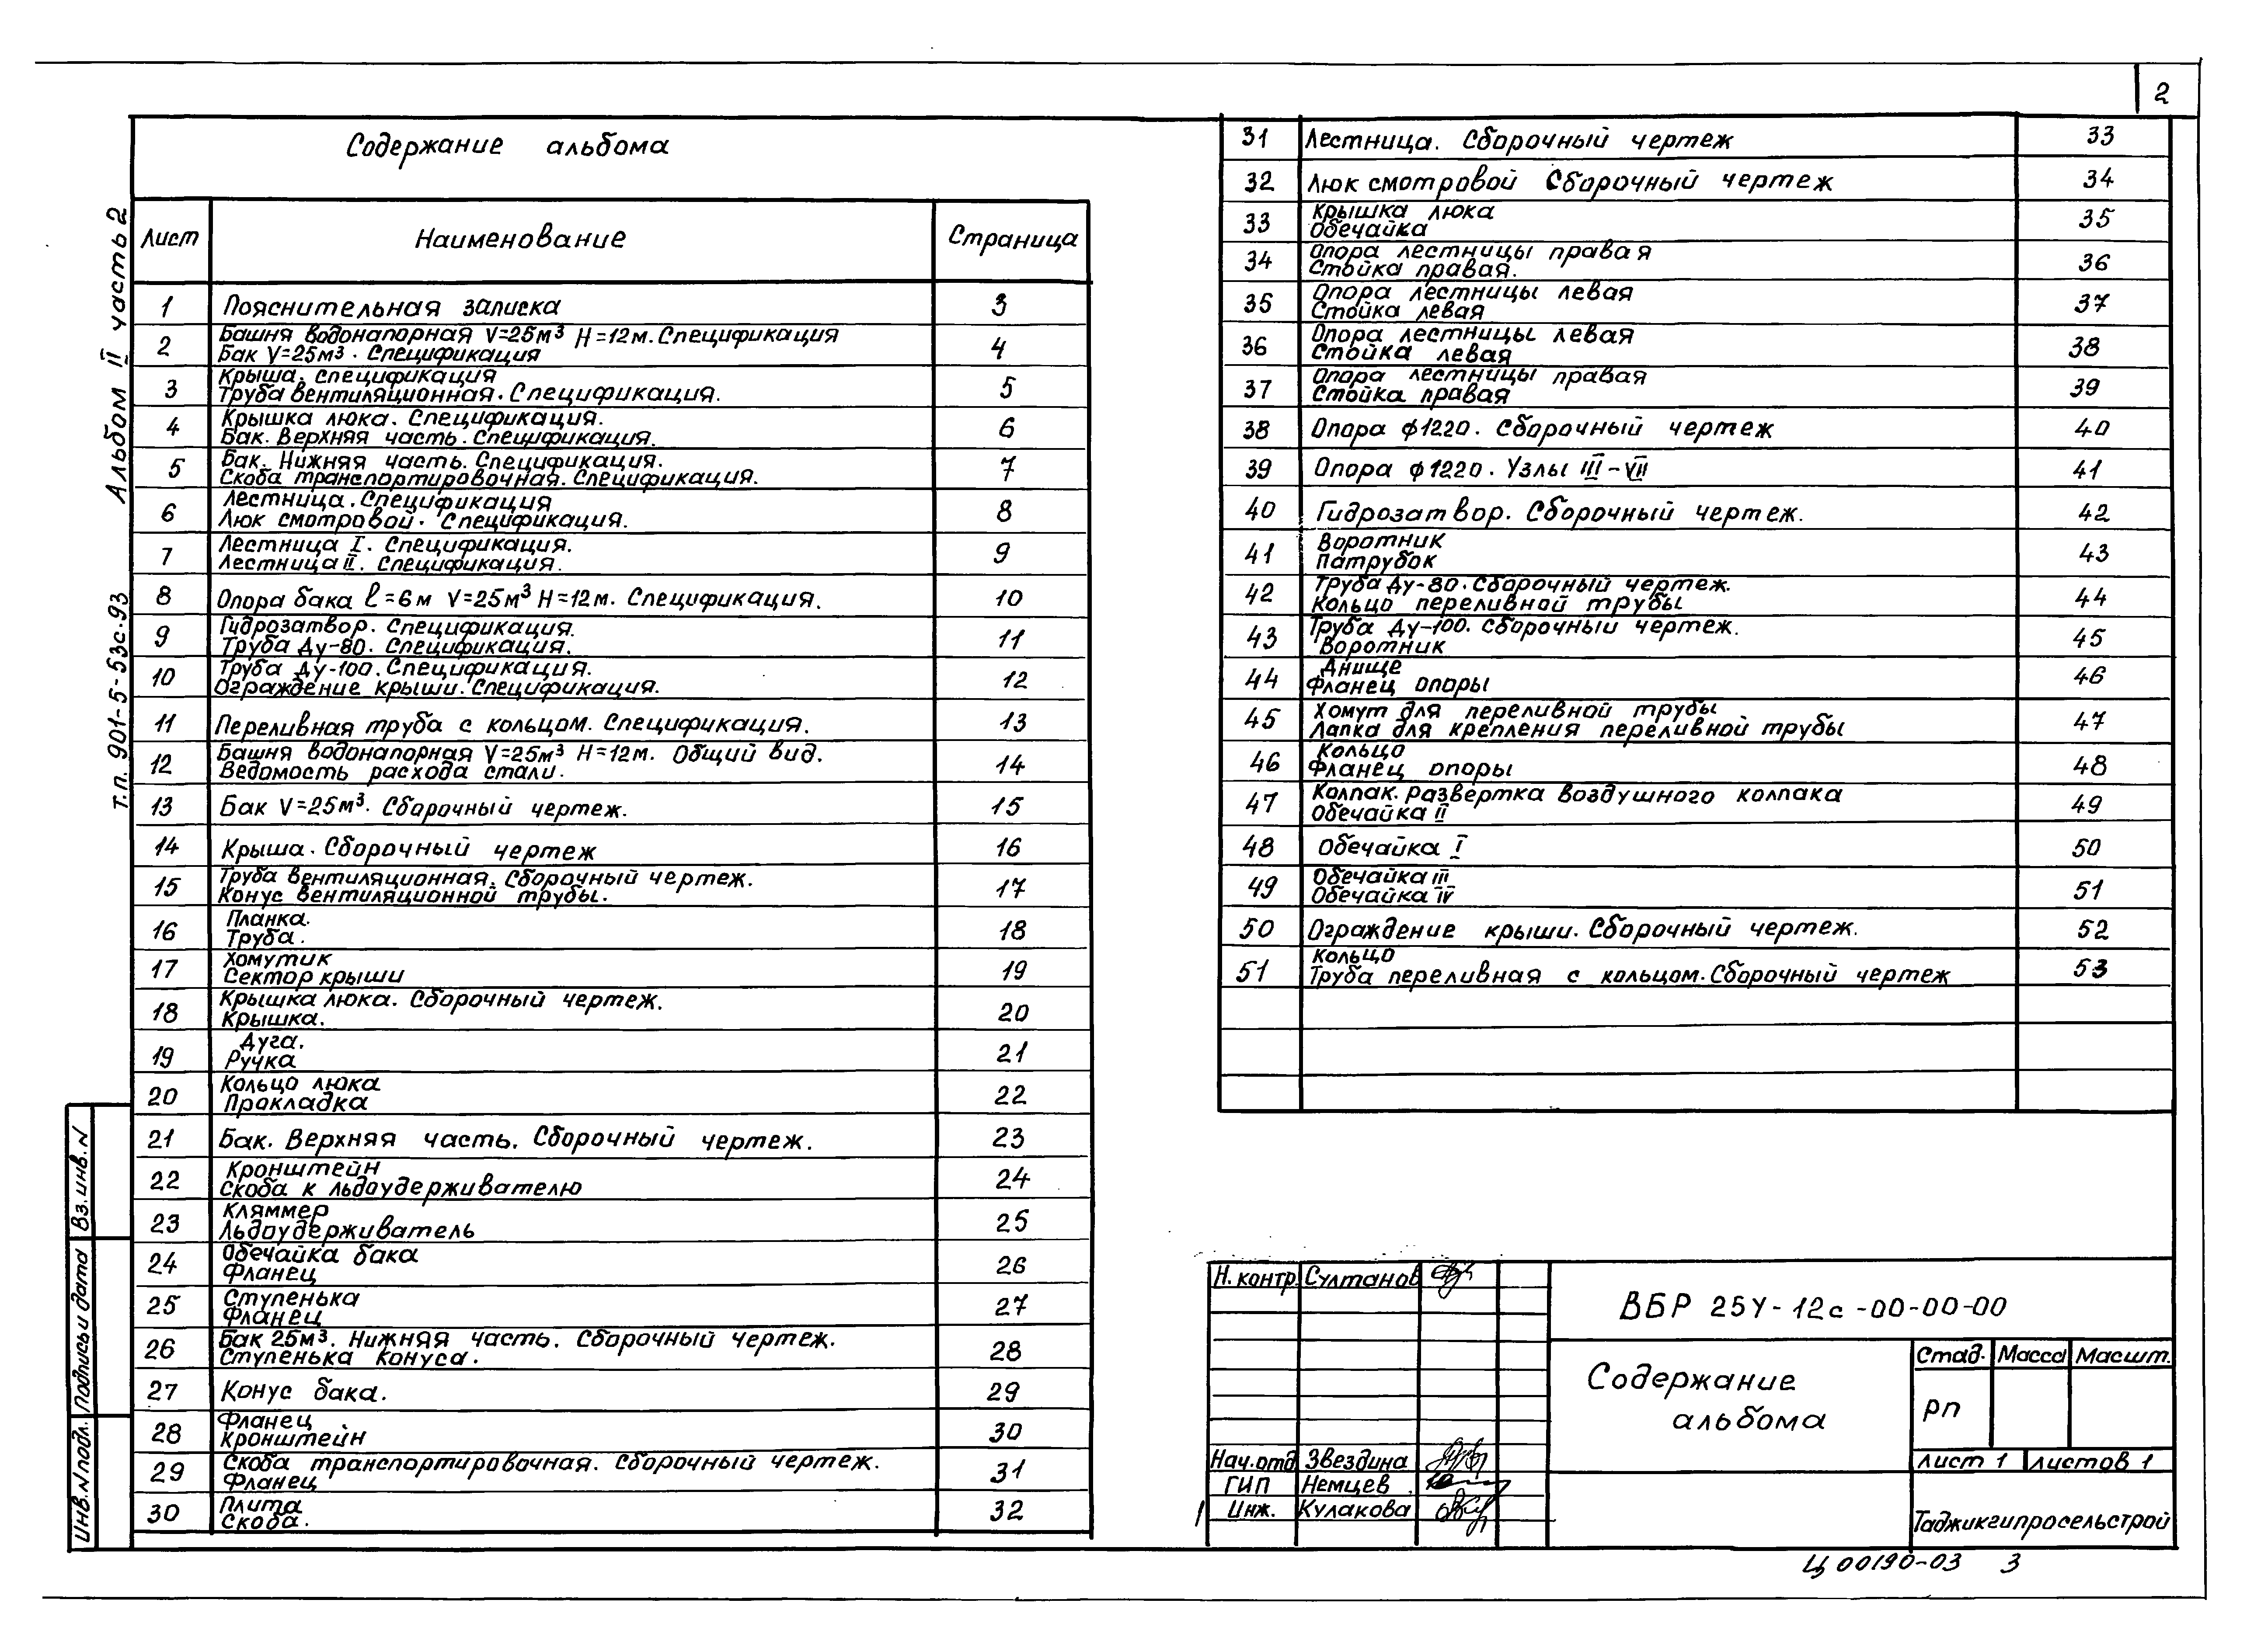 2
Содержание альбома
Лист Наименование Страница
1 Пояснительная записка 3
2 Башня водонапорная V=25м³ H=12м. Спецификация 4
Бак V=25м³. Спецификация
3 Крыша. Спецификация 5
Труба вентиляционная. Спецификация.
4 Крышка люка. Спецификация. 6
Бак. Верхняя часть. Спецификация.
5 Бак. Нижняя часть. Спецификация. 7
Скоба транспортировочная. Спецификация.
6 Лестница. Спецификация 8
Люк смотровой. Спецификация.
7 Лестница I. Спецификация. 9
Лестница II. Спецификация.
8 Опора бака ℓ=6м V=25м³ H=12м. Спецификация. 10
9 Гидрозатвор. Спецификация. 11
Труба Ду-80. Спецификация.
10 Труба Ду-100. Спецификация. 12
Ограждение крыши. Спецификация.
11 Переливная труба с кольцом. Спецификация. 13
12 Башня водонапорная V=25м³ H=12м. Общий вид. 14
Ведомость расхода стали.
13 Бак V=25м³. Сборочный чертеж. 15
14 Крыша. Сборочный чертеж 16
15 Труба вентиляционная. Сборочный чертеж. 17
Конус вентиляционной трубы.
16 Планка. 18
Труба.
17 Хомутик 19
Сектор крыши
18 Крышка люка. Сборочный чертеж. 20
Крышка.
19 Дуга. 21
Ручка
20 Кольцо люка 22
Прокладка
21 Бак. Верхняя часть. Сборочный чертеж. 23
22 Кронштейн 24
Скоба к льдоудерживателю
23 Кляммер 25
Льдоудерживатель
24 Обечайка бака 26
Фланец
25 Ступенька 27
Фланец
26 Бак 25м³. Нижняя часть. Сборочный чертеж. 28
Ступенька конуса.
27 Конус бака. 29
28 Фланец 30
Кронштейн
29 Скоба транспортировочная. Сборочный чертеж. 31
Фланец
30 Плита 32
Скоба.
31 Лестница. Сборочный чертеж 33
32 Люк смотровой Сборочный чертеж 34
33 Крышка люка 35
Обечайка
34 Опора лестницы правая 36
Стойка правая.
35 Опора лестницы левая 37
Стойка левая
36 Опора лестницы левая 38
Стойка левая
37 Опора лестницы правая 39
Стойка правая
38 Опора ф1220. Сборочный чертеж 40
39 Опора ф1220. Узлы III-VII 41
40 Гидрозатвор. Сборочный чертеж. 42
41 Воротник 43
Патрубок
42 Труба Ду-80. Сборочный чертеж. 44
Кольцо переливной трубы
43 Труба Ду-100. Сборочный чертеж. 45
Воротник
44 Днище 46
Фланец опоры
45 Хомут для переливной трубы 47
Лапка для крепления переливной трубы
46 Кольцо 48
Фланец опоры
47 Колпак. развертка воздушного колпака 49
Обечайка II
48 Обечайка I 50
49 Обечайка III 51
Обечайка IV
50 Ограждение крыши. Сборочный чертеж. 52
51 Кольцо 53
Труба переливная с кольцом. Сборочный чертеж
Т.п. 901-5-53с.93 Альбом II часть 2
Вз. инв. N
Подпись и дата
Инв. N подл.
Н. контр. Султанов
Нач. отд Звездина
ГИП Немцев
1 Инж. Кулакова
ВБР 25У-12с-00-00-00
Содержание
альбома
Стад. Масса Масшт.
рп
Лист 1 Листов 1
Таджикгипросельстрой
Ц 00190-03 3